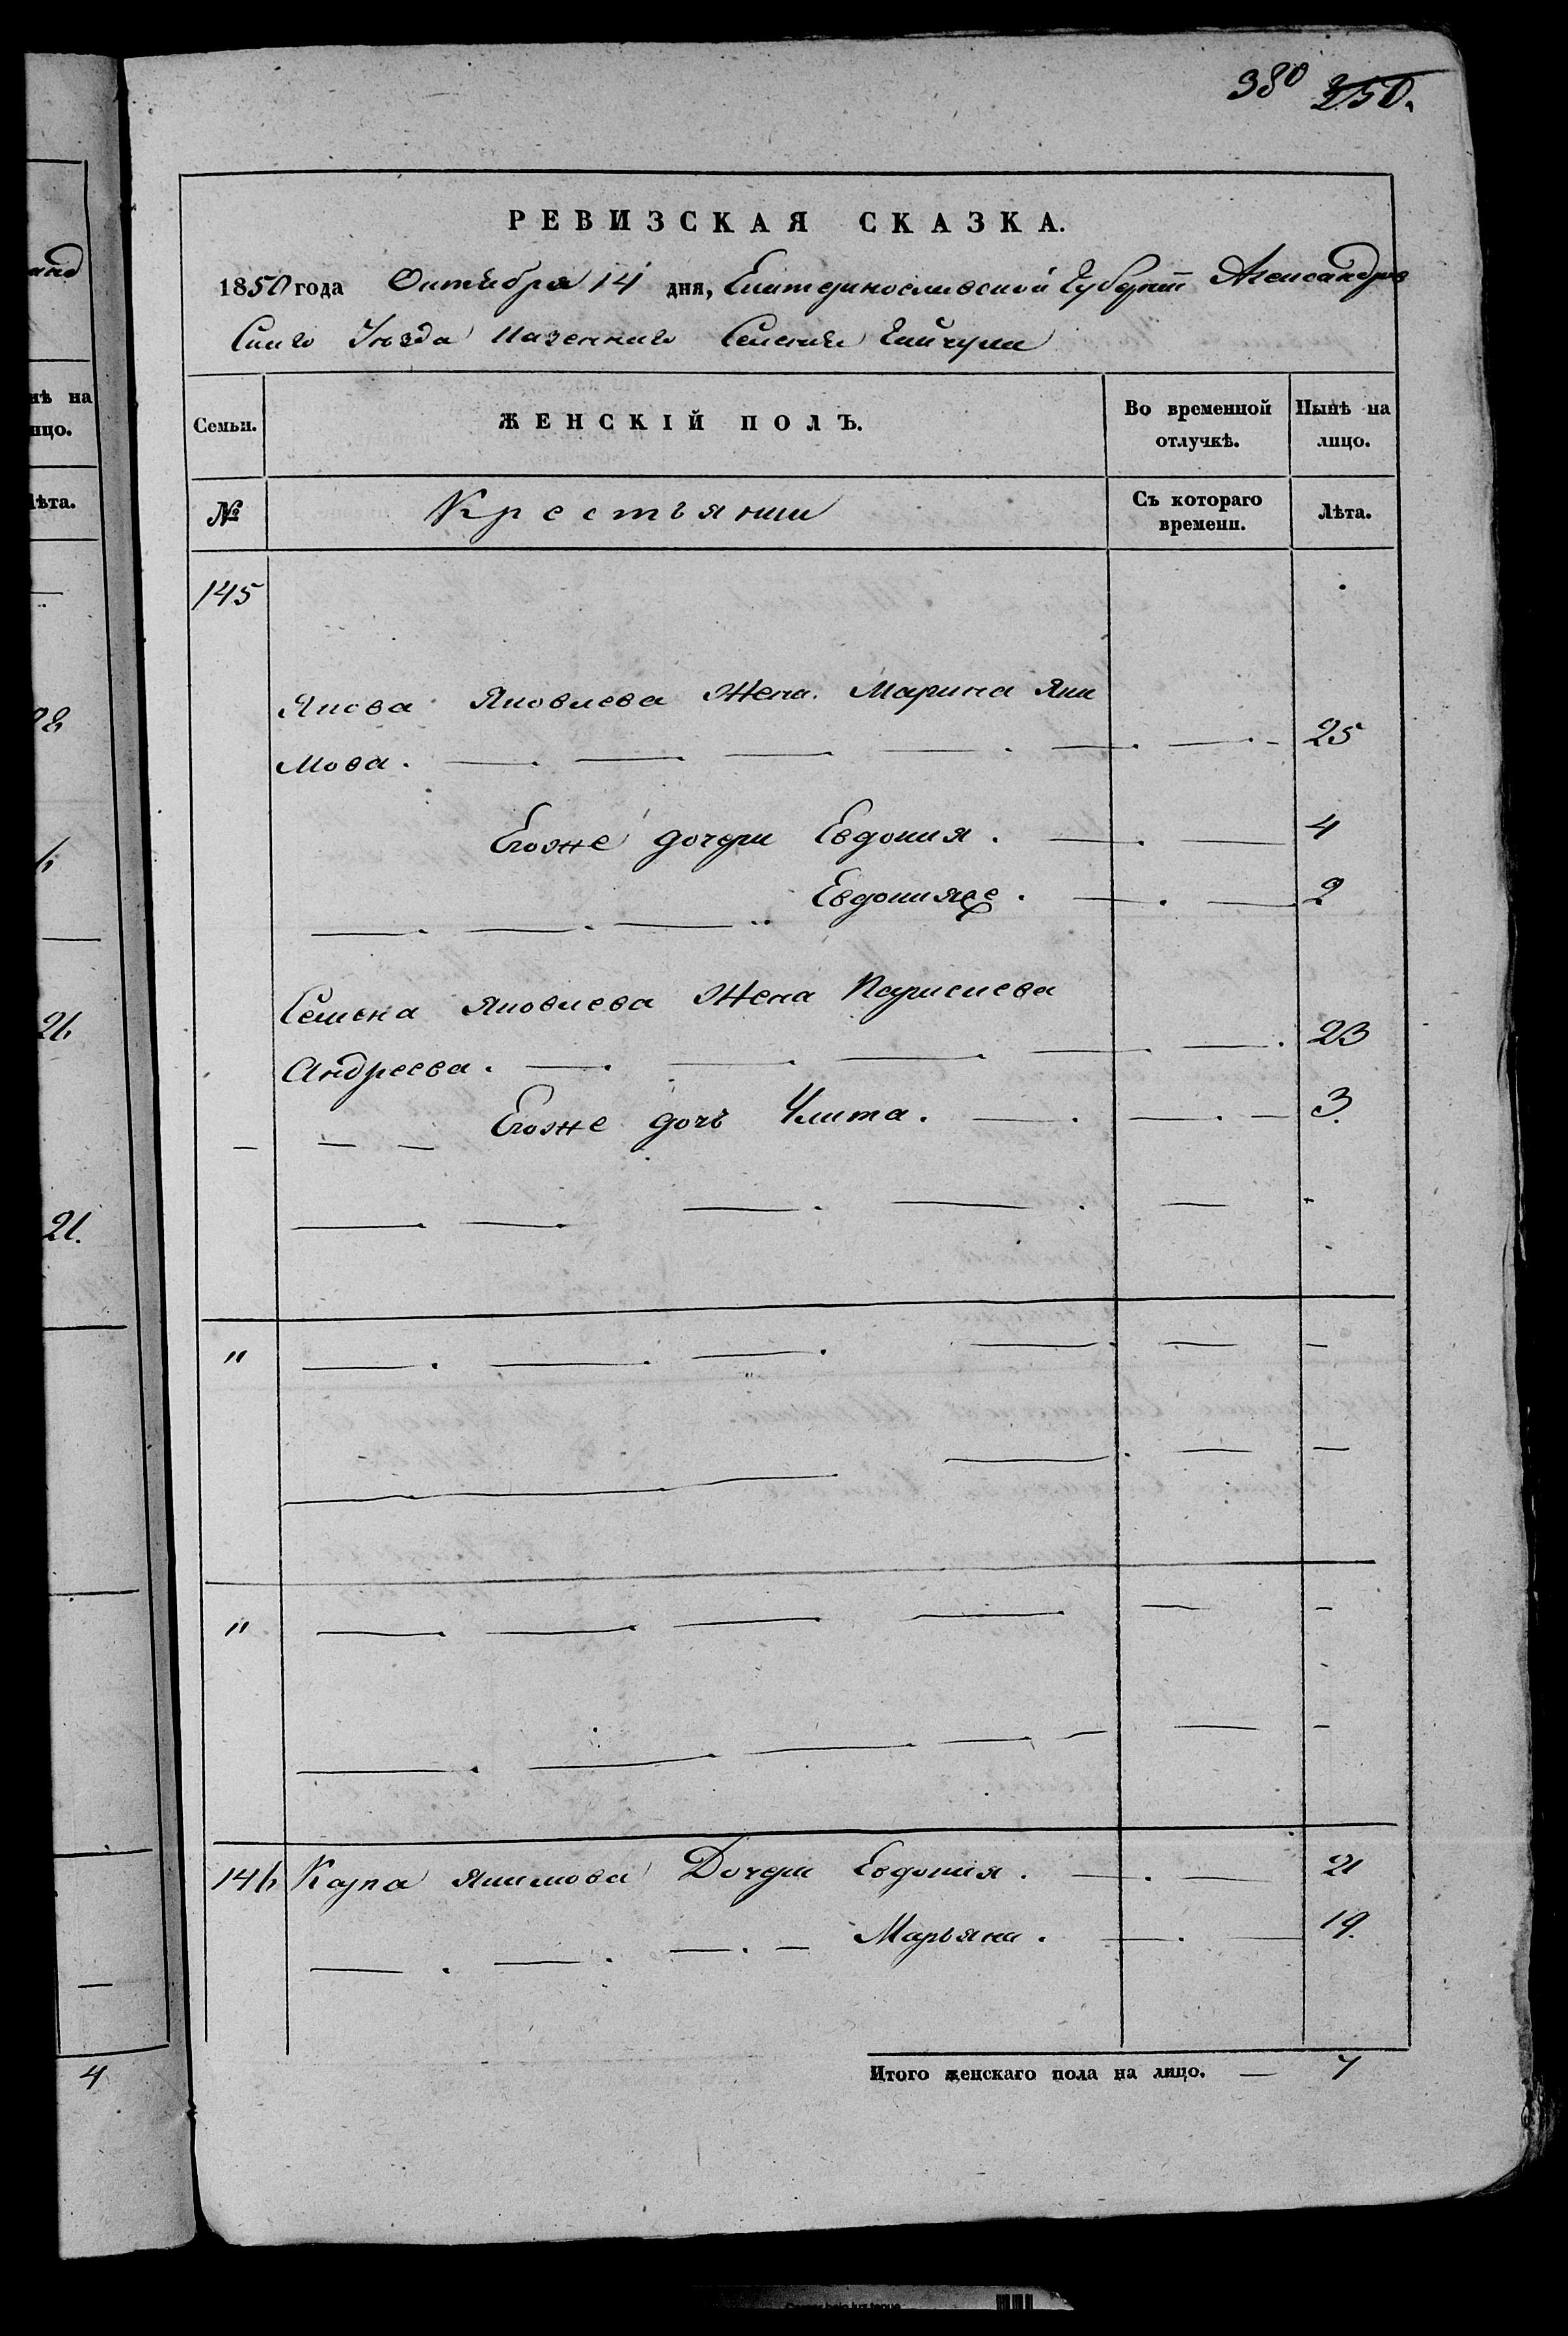 380 250.
РЕВИЗСКАЯ СКАЗКА.
1850 года Октября 14 дня, Екатеринославской Губерніи Александров
Скаго Уѣзда Казеннаго Селенія
Семьи. ЖЕНСКІЙ ПОЛЪ. Во временной отлучкѣ. Нынѣ на лицо.
№ Крестьянки Съ котораго времени. Лѣта.
145
Якова Яковлева Жена Марина Яки
мова. 25
Егоже дочери Евдокия. 4
Евдокия 2
Семена Яковлева Жена
Андреева. 23
Егоже дочь Улита. 3.
"
"
146 Карпа Якимова Дочери Евдокия. 21
Марьяна. 19.
Итого женскаго пола на лицо. — 7
нѣ на
ицо.
Лѣта.
21.
4